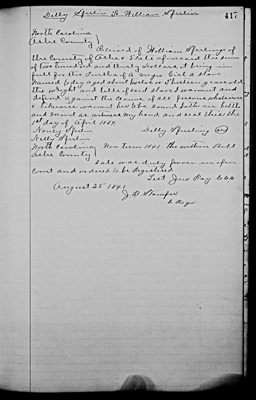 Delby Spurlin To William Spurlin
417
North Carolina
Ashe County
Received of William Spurling of
the County of Ashe & State aforesaid the sum
of two hundred and thirty dollars it being in
full for the Purchase of a Negro Girl a Slave
named aged about twelve or Thirteen years old
the wright and title of said Slave I warrant and
defend against the Claims of all persons whatsoever
& likewise warrant her to be sound both in helth
and mind as witness my hand and seal this the
1st day of April
Nancy Spurlin Delby Spurling
Nelly Spurlin
North Carolina Nov term 1841 the within Bill
Ashe County
Sale was duly proven in open
Court and ordered to be registered
Test Jno Ray
August 25 1841
J. B.